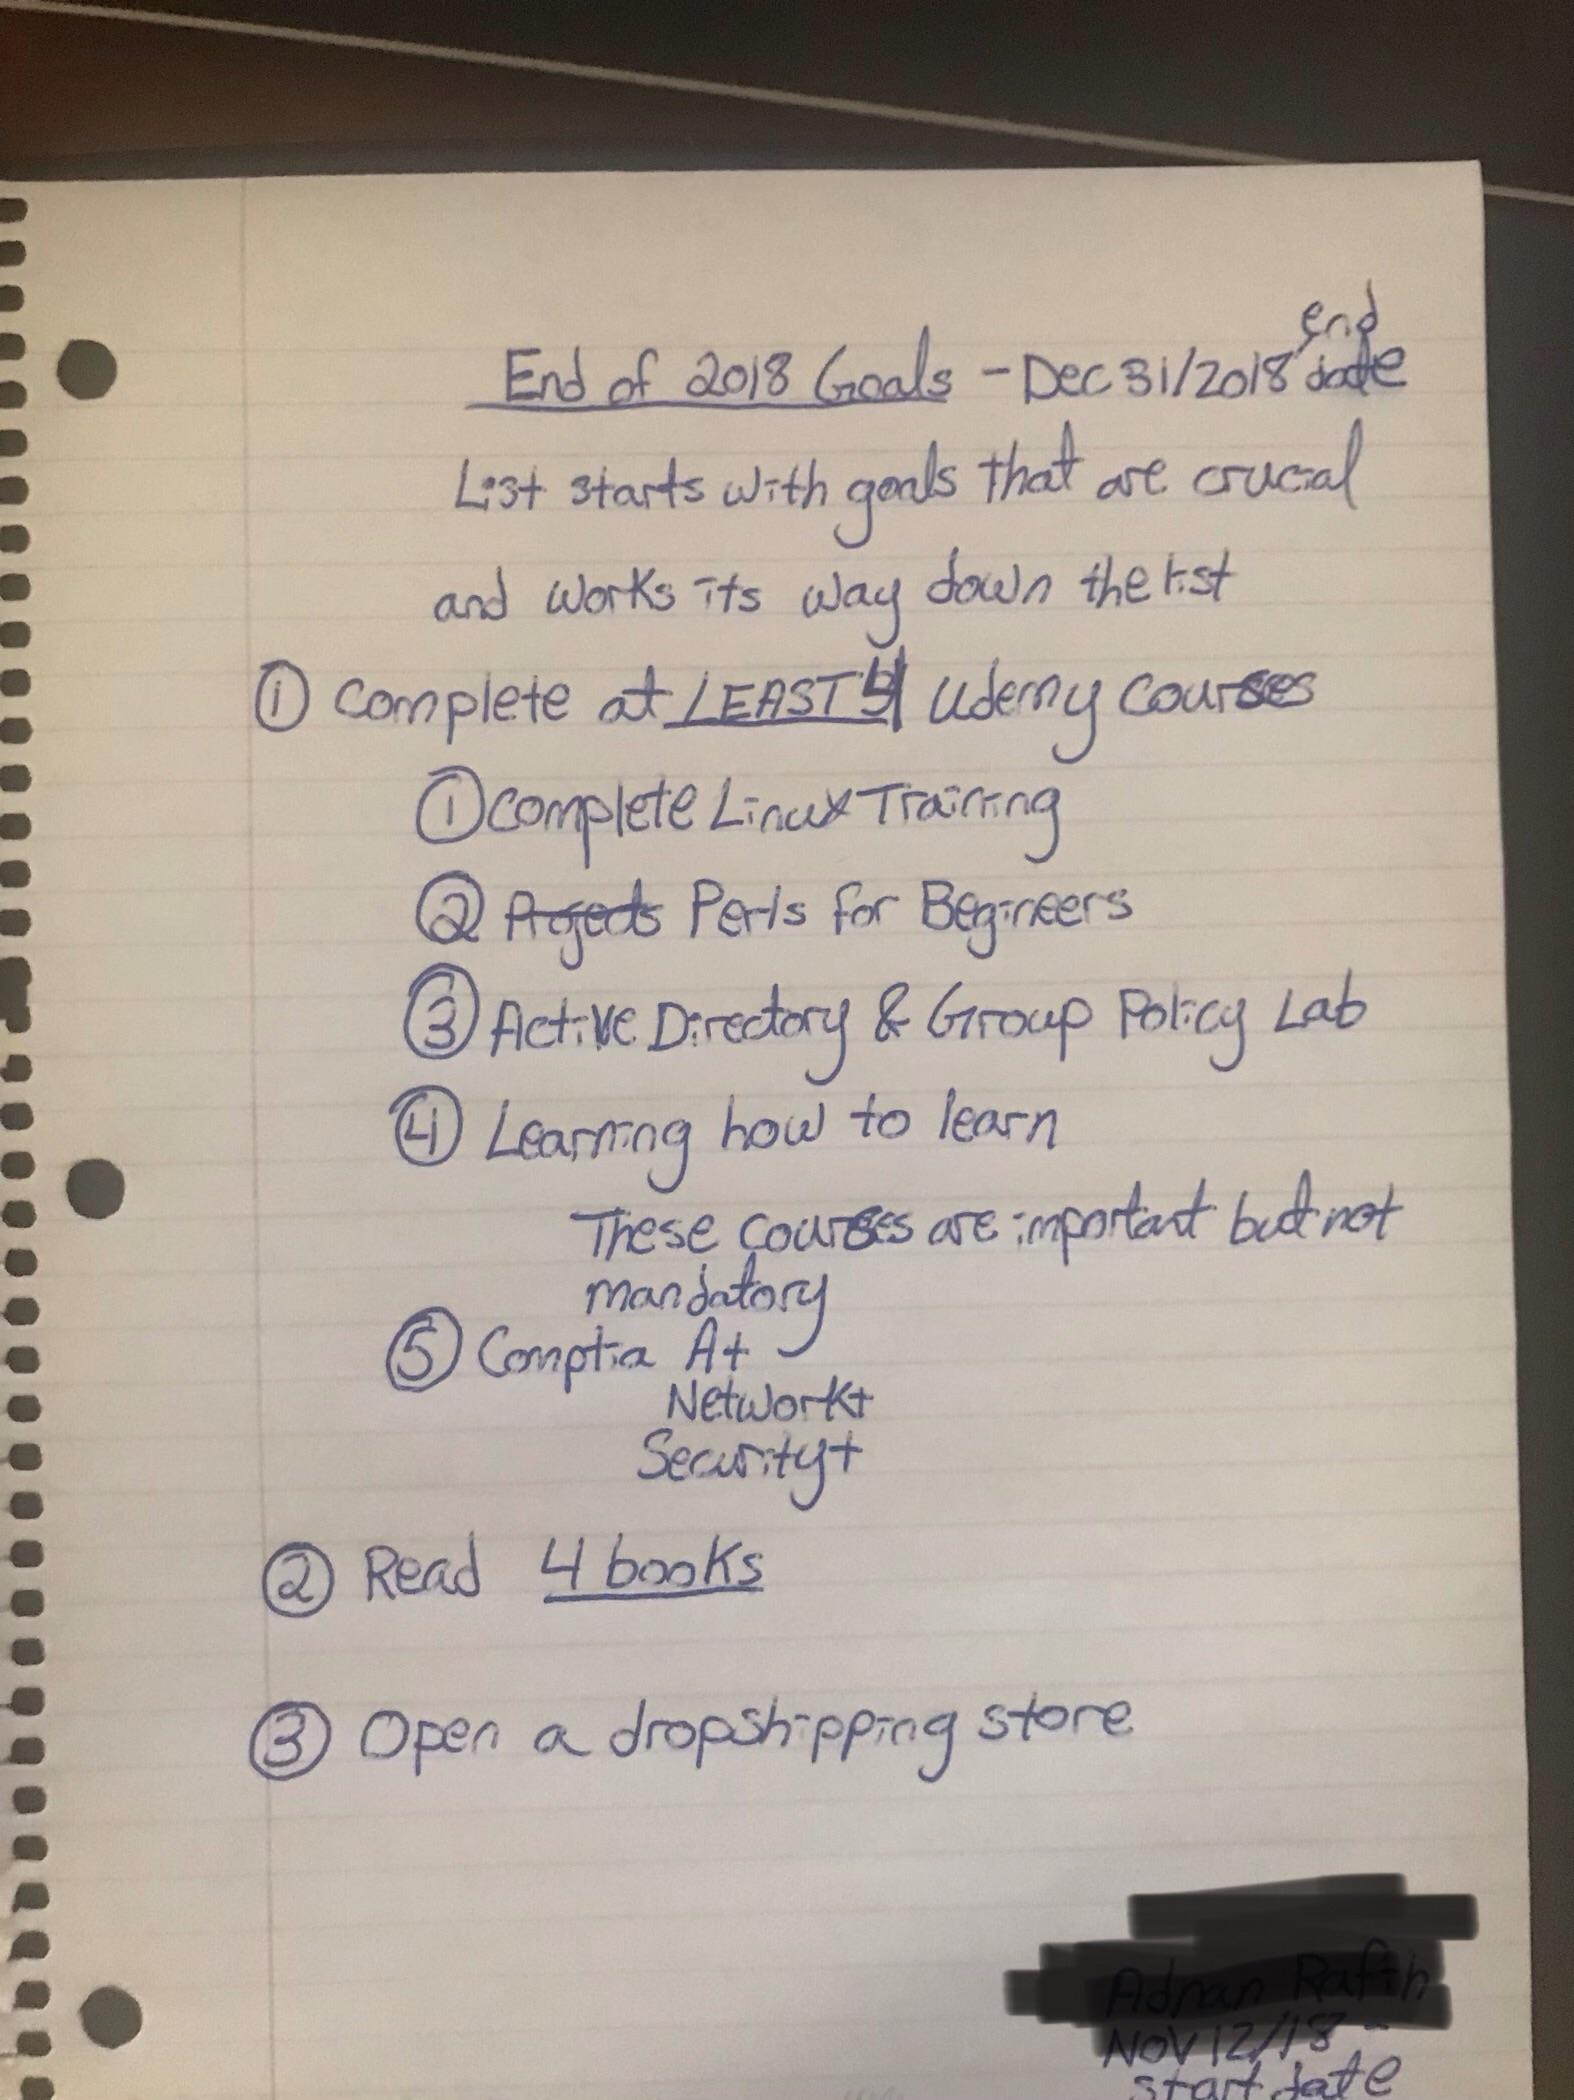 End of 2018 Goals - Dec 31/2018 end date
List starts with goals that are crucial
and works its way down the list
① Complete at LEAST 4 Udemy courses
① Complete Linux Training
② Perls for Begineers
③ Active Directory & Group Policy Lab
④ Learning how to learn
These courses are important but not
mandatory
⑤ Comptia A+
Network+
Security+
② Read 4 books
③ Open a dropshipping store
NOV 12/18 -
start date